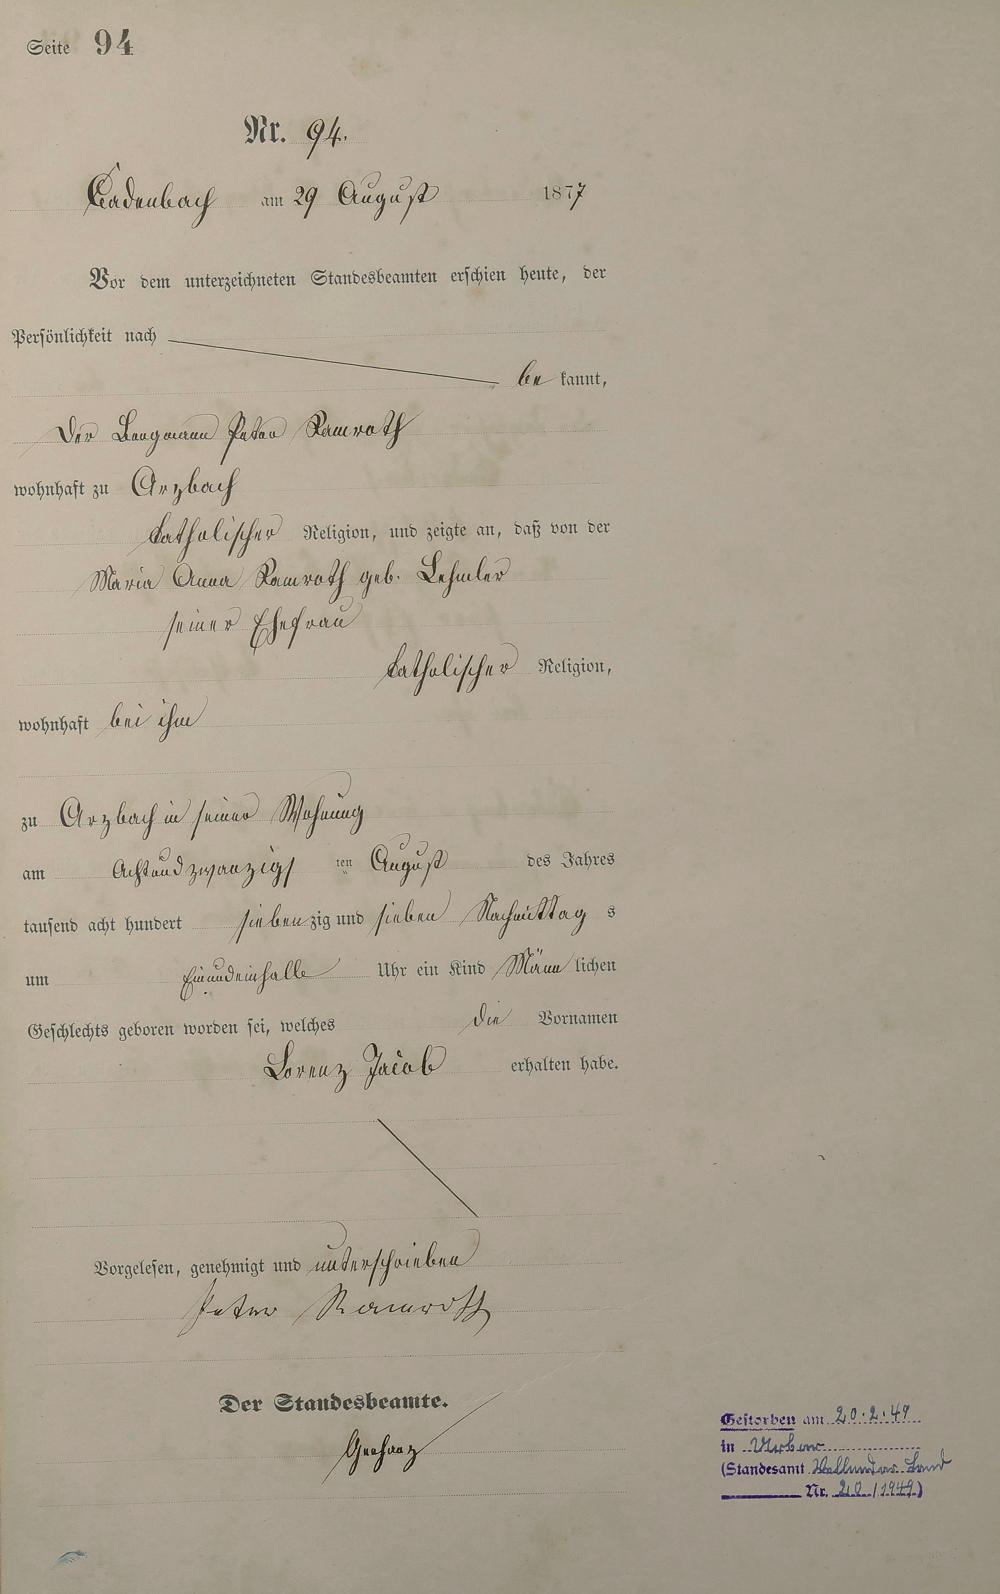 Seite 94
Nr. 94.
Cadenbach am 29 August 1877
Vor dem unterzeichneten Standesbeamten erschien heute, der
Persönlichkeit nach
be kannt,
Der Bergmann Peter Ramroth
wohnhaft zu Arzbach
katholischer Religion, und zeigte an, daß von der
Maria Anna Ramroth geb. Lehmler
seiner Ehefrau
katholischer Religion,
wohnhaft bei ihm
zu Arzbach in seiner Wohnung
am Achtundzwanzigs ten August des Jahres
tausend acht hundert sieben zig und sieben Nachmittag s
um Einundeinhalb Uhr ein Kind Männ lichen
Geschlechts geboren worden sei, welches die Vornamen
Lorenz Jacob erhalten habe.
Vorgelesen, genehmigt und unterschrieben
Peter Ramroth
Der Standesbeamte.
Gestorben am 20.2.49
in Urbar
(Standesamt Vallendar-Land
Nr. 20/1949)